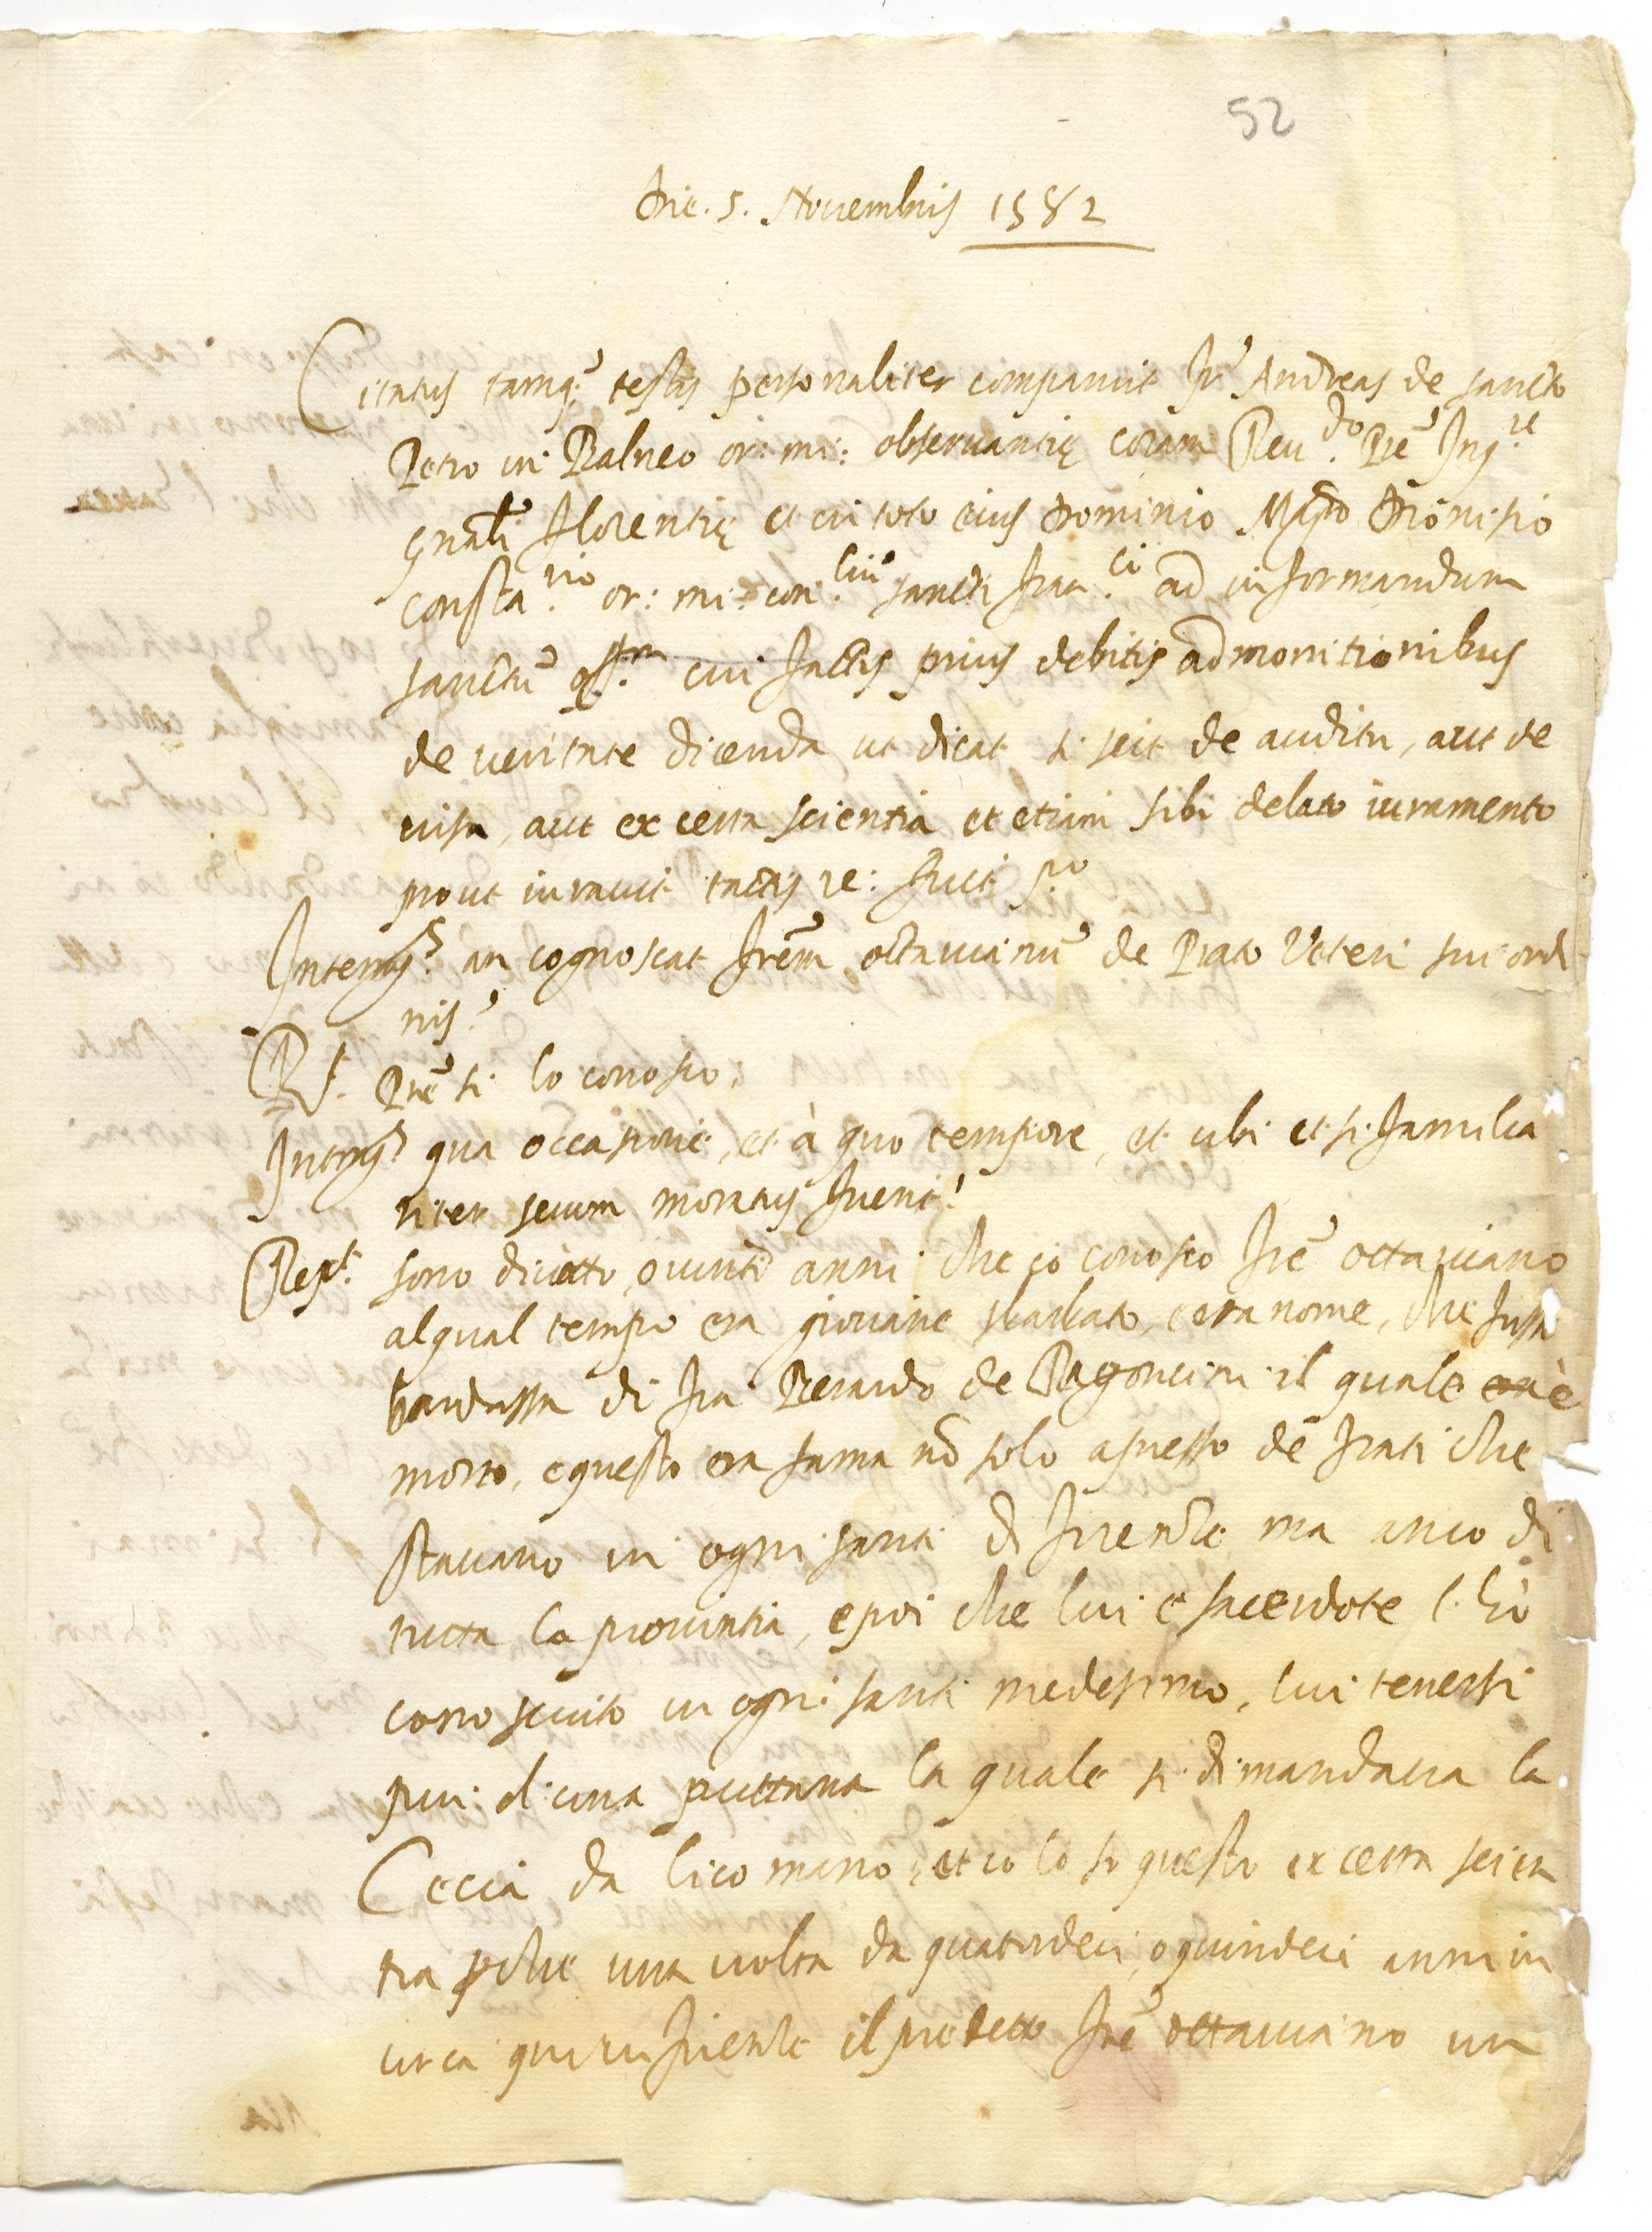 52
Die. 5. Novembris 1582
Citatus tamq; testis personaliter comparuit fr Andreas de sancto
Petro in Balneo or: mi: observantię coram Reu.do Pre Inq.re
gnali Florentię et in toto eius Dominio Magro Dionisio
Consta.rio or: mi: con.liu sancti fran.ci ad informandum
sanctu off.m cui factis prius debitis admonitionibus
de veritate dicenda ut dicat si scit de auditu, aut de
visu, aut ex certa scientia et etiam sibi delato iuramento
prout iuravit tactis re: fuit p.o
Interrog.s an cognoscat frem octavianu de Prato Veteri sui ordi
nis?
R.t Pre si lo conosco;
Interg.s qua occasione, et à quo tempore, et ubi et si familia
riter secum moratus fuerit?
Resp.t sono diciotto, o vinti anni che io conosco fre ottaviano
al qual tempo era giovane sbarbato, e era nome, che fussi
bardassa di fra Berardo de Ragoncini il quale era è
morto, e questo era fama nō solo apresso de frati che
stavano in ogni santi di firenze ma anco di
tutta la provintia, e poi che lui e sacerdote l'hò
conosciuto in ogni santi medesimo, lui tenersi
piu d'una puttana la quale si dimandava la
Cecia da Dicomano, et io lo so questo ex certa scien
tia perche una volta da quatordeci, o quindeci anni in
circa qui in firenze il predetto fre ottaviano un